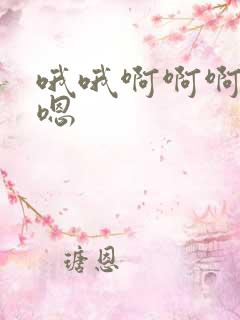 哦哦啊啊啊
嗯
瑭恩